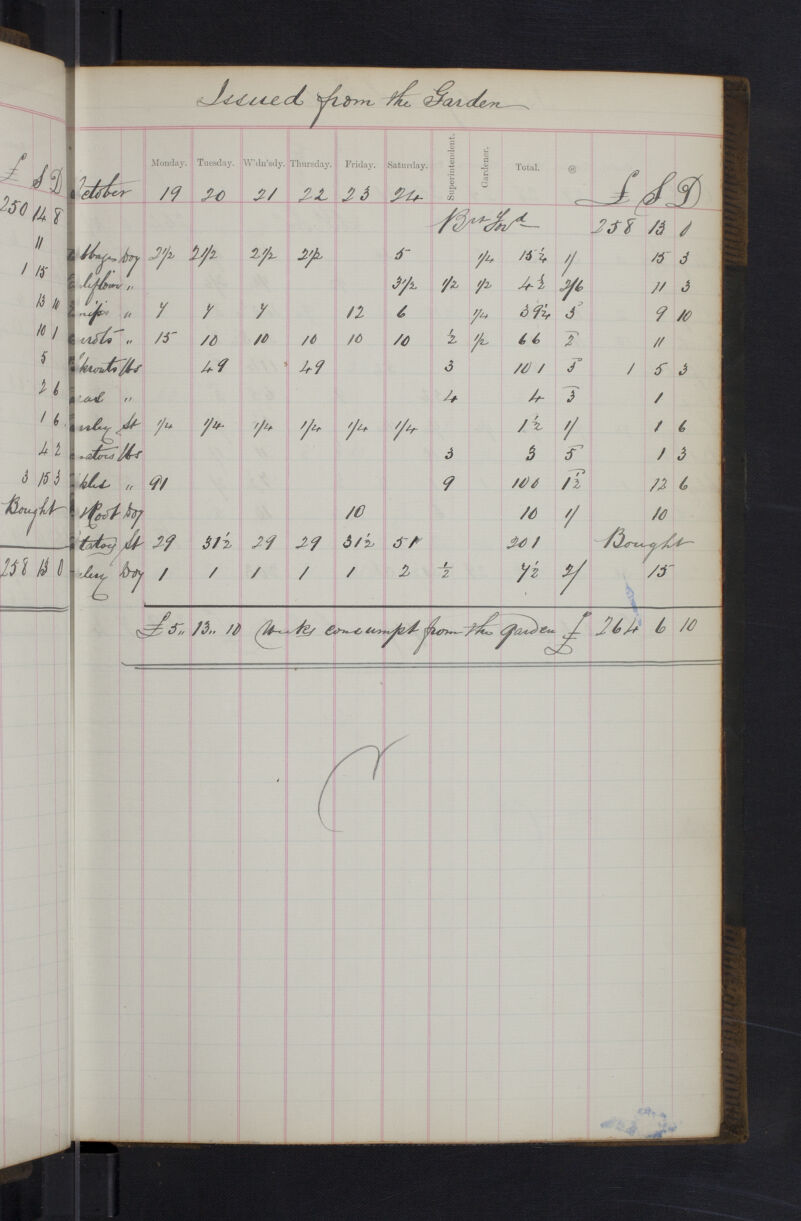 Issued from the Garden
£ S D
250 14 8
11
1 15
13 10
10 1
5
2 6
1 6
4 2
3 15 3
Bought
258 13 0
Monday. Tuesday. W'dn'sdy. Thursday. Friday. Saturday. Superintendent. Gardener. Total. @ £ S D
ctober 19 20 21 22 23 24
Brt Forwd 258 13 0
bbages Doz 2 1/2 2 1/2 2 1/2 2 1/2 5 1/4 15 1/4 1/ 15 3
liflowr " 3 1/2 1/2 1/2 4 1/2 2/6 11 3
nips " 7 7 7 12 6 1/4 39 1/4 3 9 10
rrots " 15 10 10 10 10 10 1/2 1/2 66 2 11
krouts lbs 49 49 3 101 3 1 5 3
eas " 4 4 3 1
rsley St 1/4 1/4 1/4 1/4 1/4 1/4 1 1/2 1/ 1 6
matoes lbs 3 3 5 1 3
kles " 91 9 100 1 1/2 12 6
tRoot Doz 10 10 1/ 10
tatoes St 29 31 1/2 29 29 31 1/2 51 201 Bought
lery Doz 1 1 1 1 1 2 1/2 7 1/2 2/ 15
£5 " 13 " 10 Weeks consumpt from the garden £ 264 6 10